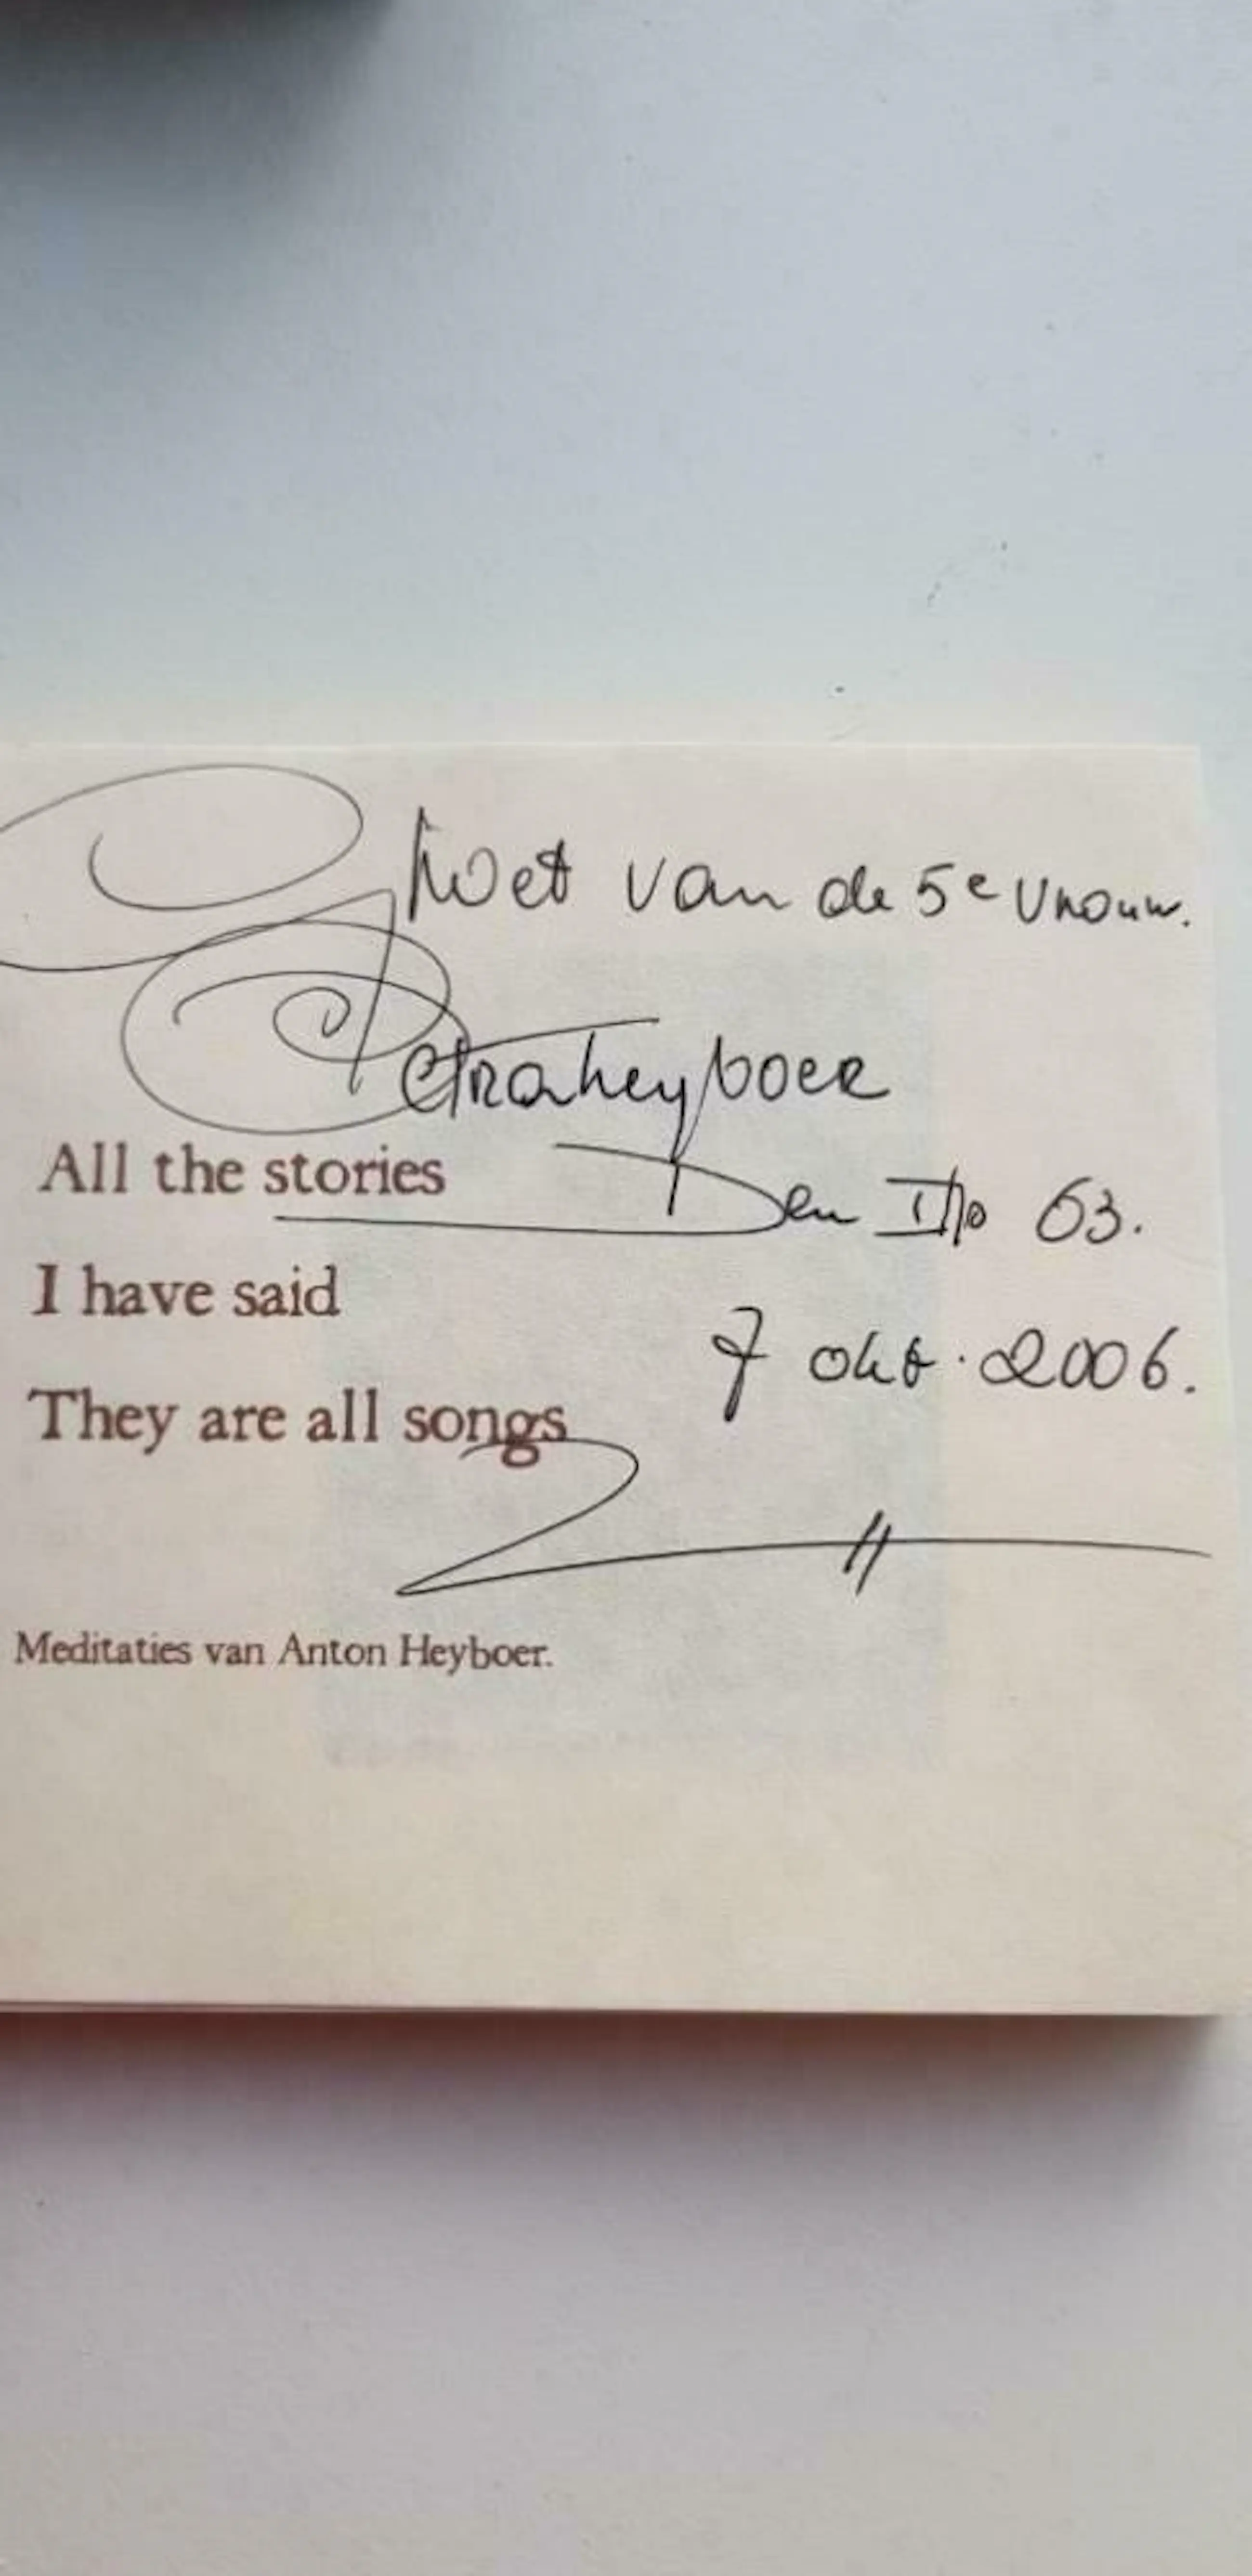 Groet van de 5e vrouw.
Petra heyboer
All the stories
Den Ilp 63.
I have said
7 okt. 2006.
They are all songs
Meditaties van Anton Heyboer.